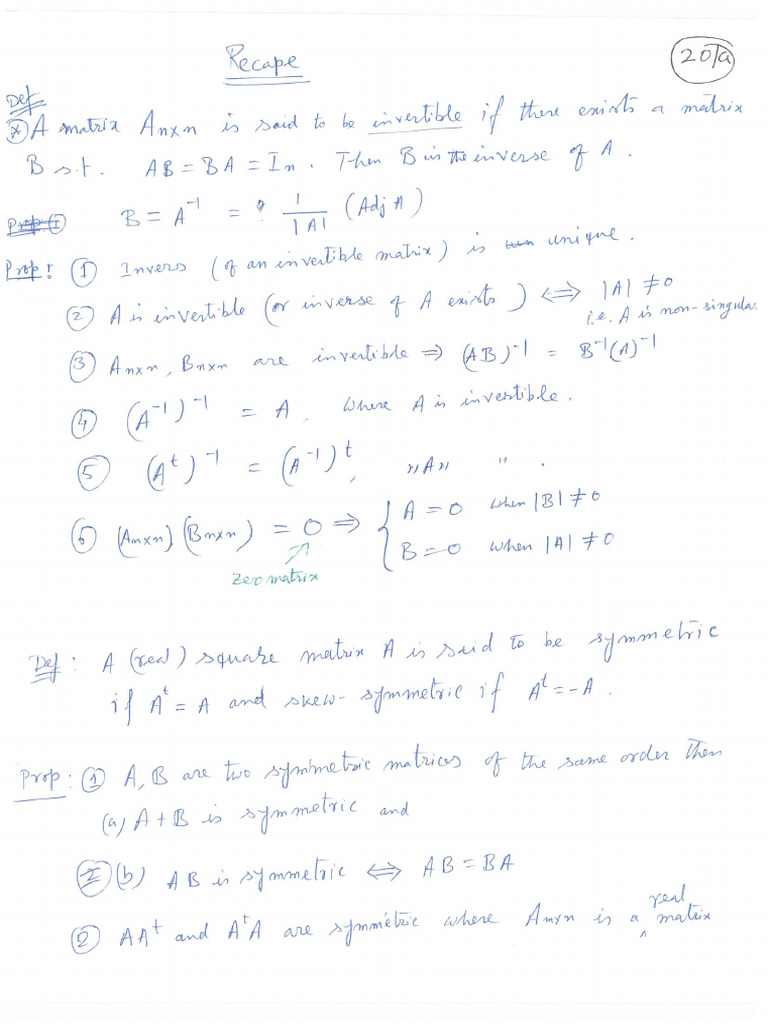 Recape
20/a
Def
* A matrix Anxn is said to be invertible if there exists a matrix
B s.t. AB = BA = In. Then B is the inverse of A.
B = A⁻¹ = ? 1/|A| (Adj A)
Prop: ① Invers (of an invertible matrix) is unique.
② A is invertible (or inverse of A exists) ⟺ |A| ≠ 0
i.e. A is non-singular.
③ Anxn, Bnxn are invertible ⇒ (AB)⁻¹ = B⁻¹(A)⁻¹
④ (A⁻¹)⁻¹ = A, where A is invertible.
⑤ (Aᵗ)⁻¹ = (A⁻¹)ᵗ, " A " " .
⑥ (Anxn)(Bnxn) = 0 ⇒ { A = 0 when |B| ≠ 0
B = 0 when |A| ≠ 0
Zero matrix
Def: A (real) square matrix A is said to be symmetric
if Aᵗ = A and skew-symmetric if Aᵗ = -A.
Prop: ① A, B are two symmetric matrices of the same order then
(a) A + B is symmetric and
(b) AB is symmetric ⟺ AB = BA
② AAᵗ and AᵗA are symmetric where Amxn is a real matrix